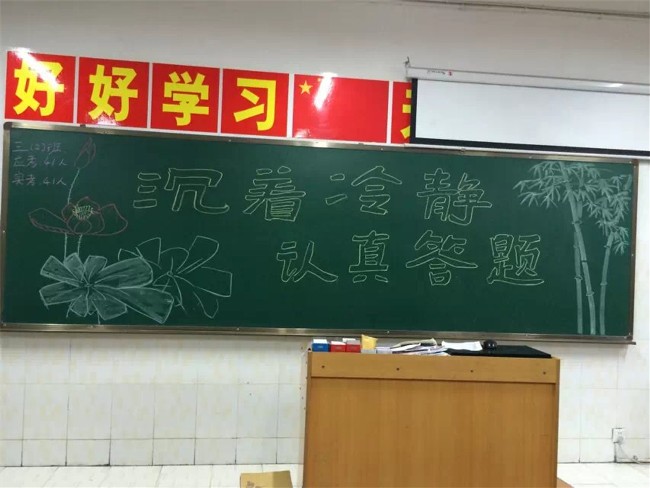 好好学习
三(2)班
应考:41人
实考:41人
沉着冷静
认真答题